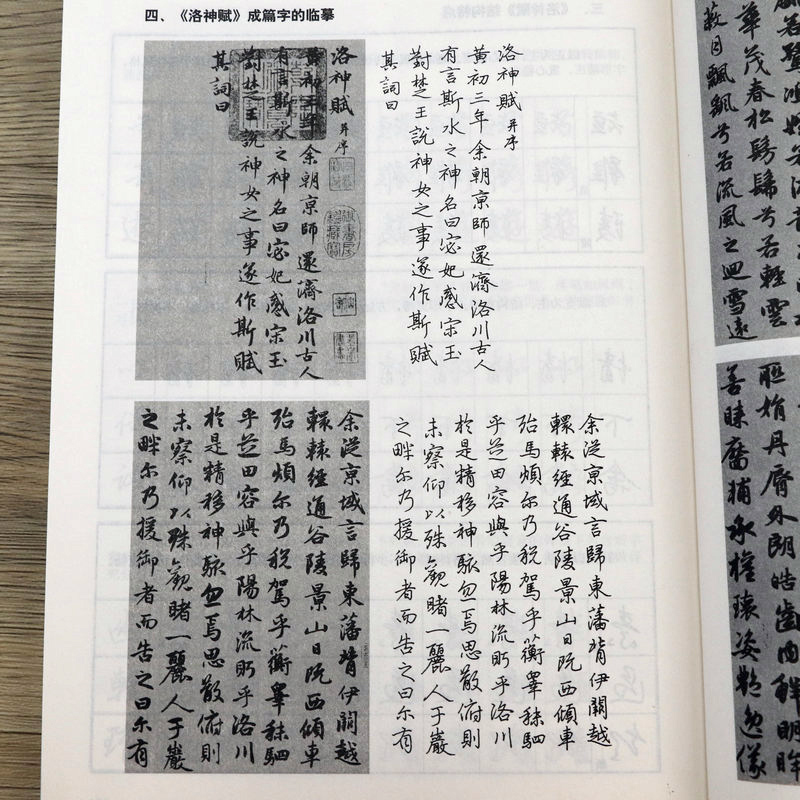 四、《洛神赋》成篇字的临摹
洛神賦并序
黃初三年余朝京師還濟洛川古人
有言斯水之神名曰宓妃感宋玉
對楚王說神女之事遂作斯賦
其詞曰
洛神賦并序
黃初三年余朝京師還濟洛川古人
有言斯水之神名曰宓妃感宋玉
對楚王說神女之事遂作斯賦
其詞曰
余從京域言歸東藩背伊闕越
轘轅經通谷陵景山日既西傾車
殆馬煩尔乃稅駕乎蘅皋秣駟
乎芝田容與乎陽林流眄乎洛川
於是精移神駭忽焉思散俯則
未察仰以殊觀睹一麗人于巖
之畔尔乃援御者而告之曰尔有
余從京域言歸東藩背伊闕越
轘轅經通谷陵景山日既西傾車
殆馬煩尔乃稅駕乎蘅皋秣駟
乎芝田容與乎陽林流眄乎洛川
於是精移神駭忽焉思散俯則
未察仰以殊觀睹一麗人于巖
之畔尔乃援御者而告之曰尔有
華茂春松髣髴兮若輕雲
蔽月飄颻兮若流風之迴雪遠
聯娟丹脣外朗皓齒內鮮明眸
善睞靨輔承權瓌姿艷逸儀